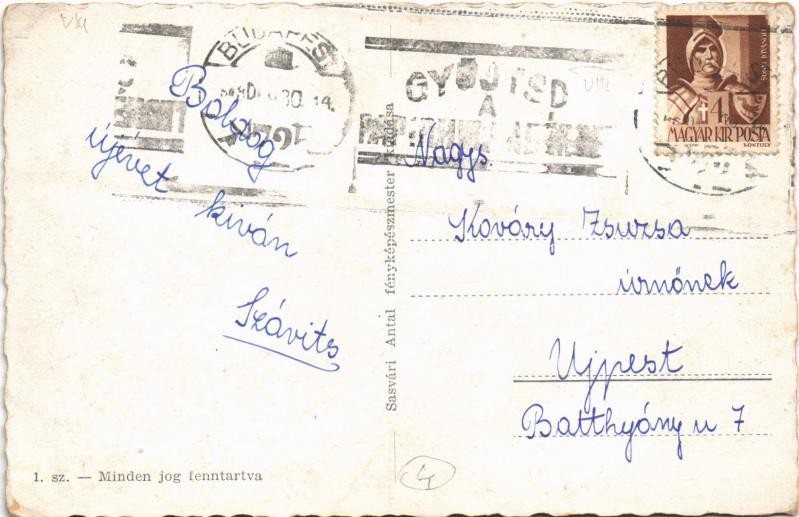 BUDAPEST
30. 14
GYŰJTSD
A
SZONDI GYÖRGY
4
MAGYAR KIR. POSTA
KONTULY
Boldog
újévet
kíván
Szávits
Sasvári Antal fényképészmester kiadása
Nagys.
Kováry Zsuzsa
úrnőnek
Ujpest
Batthyány u 7
1. sz. — Minden jog fenntartva
4